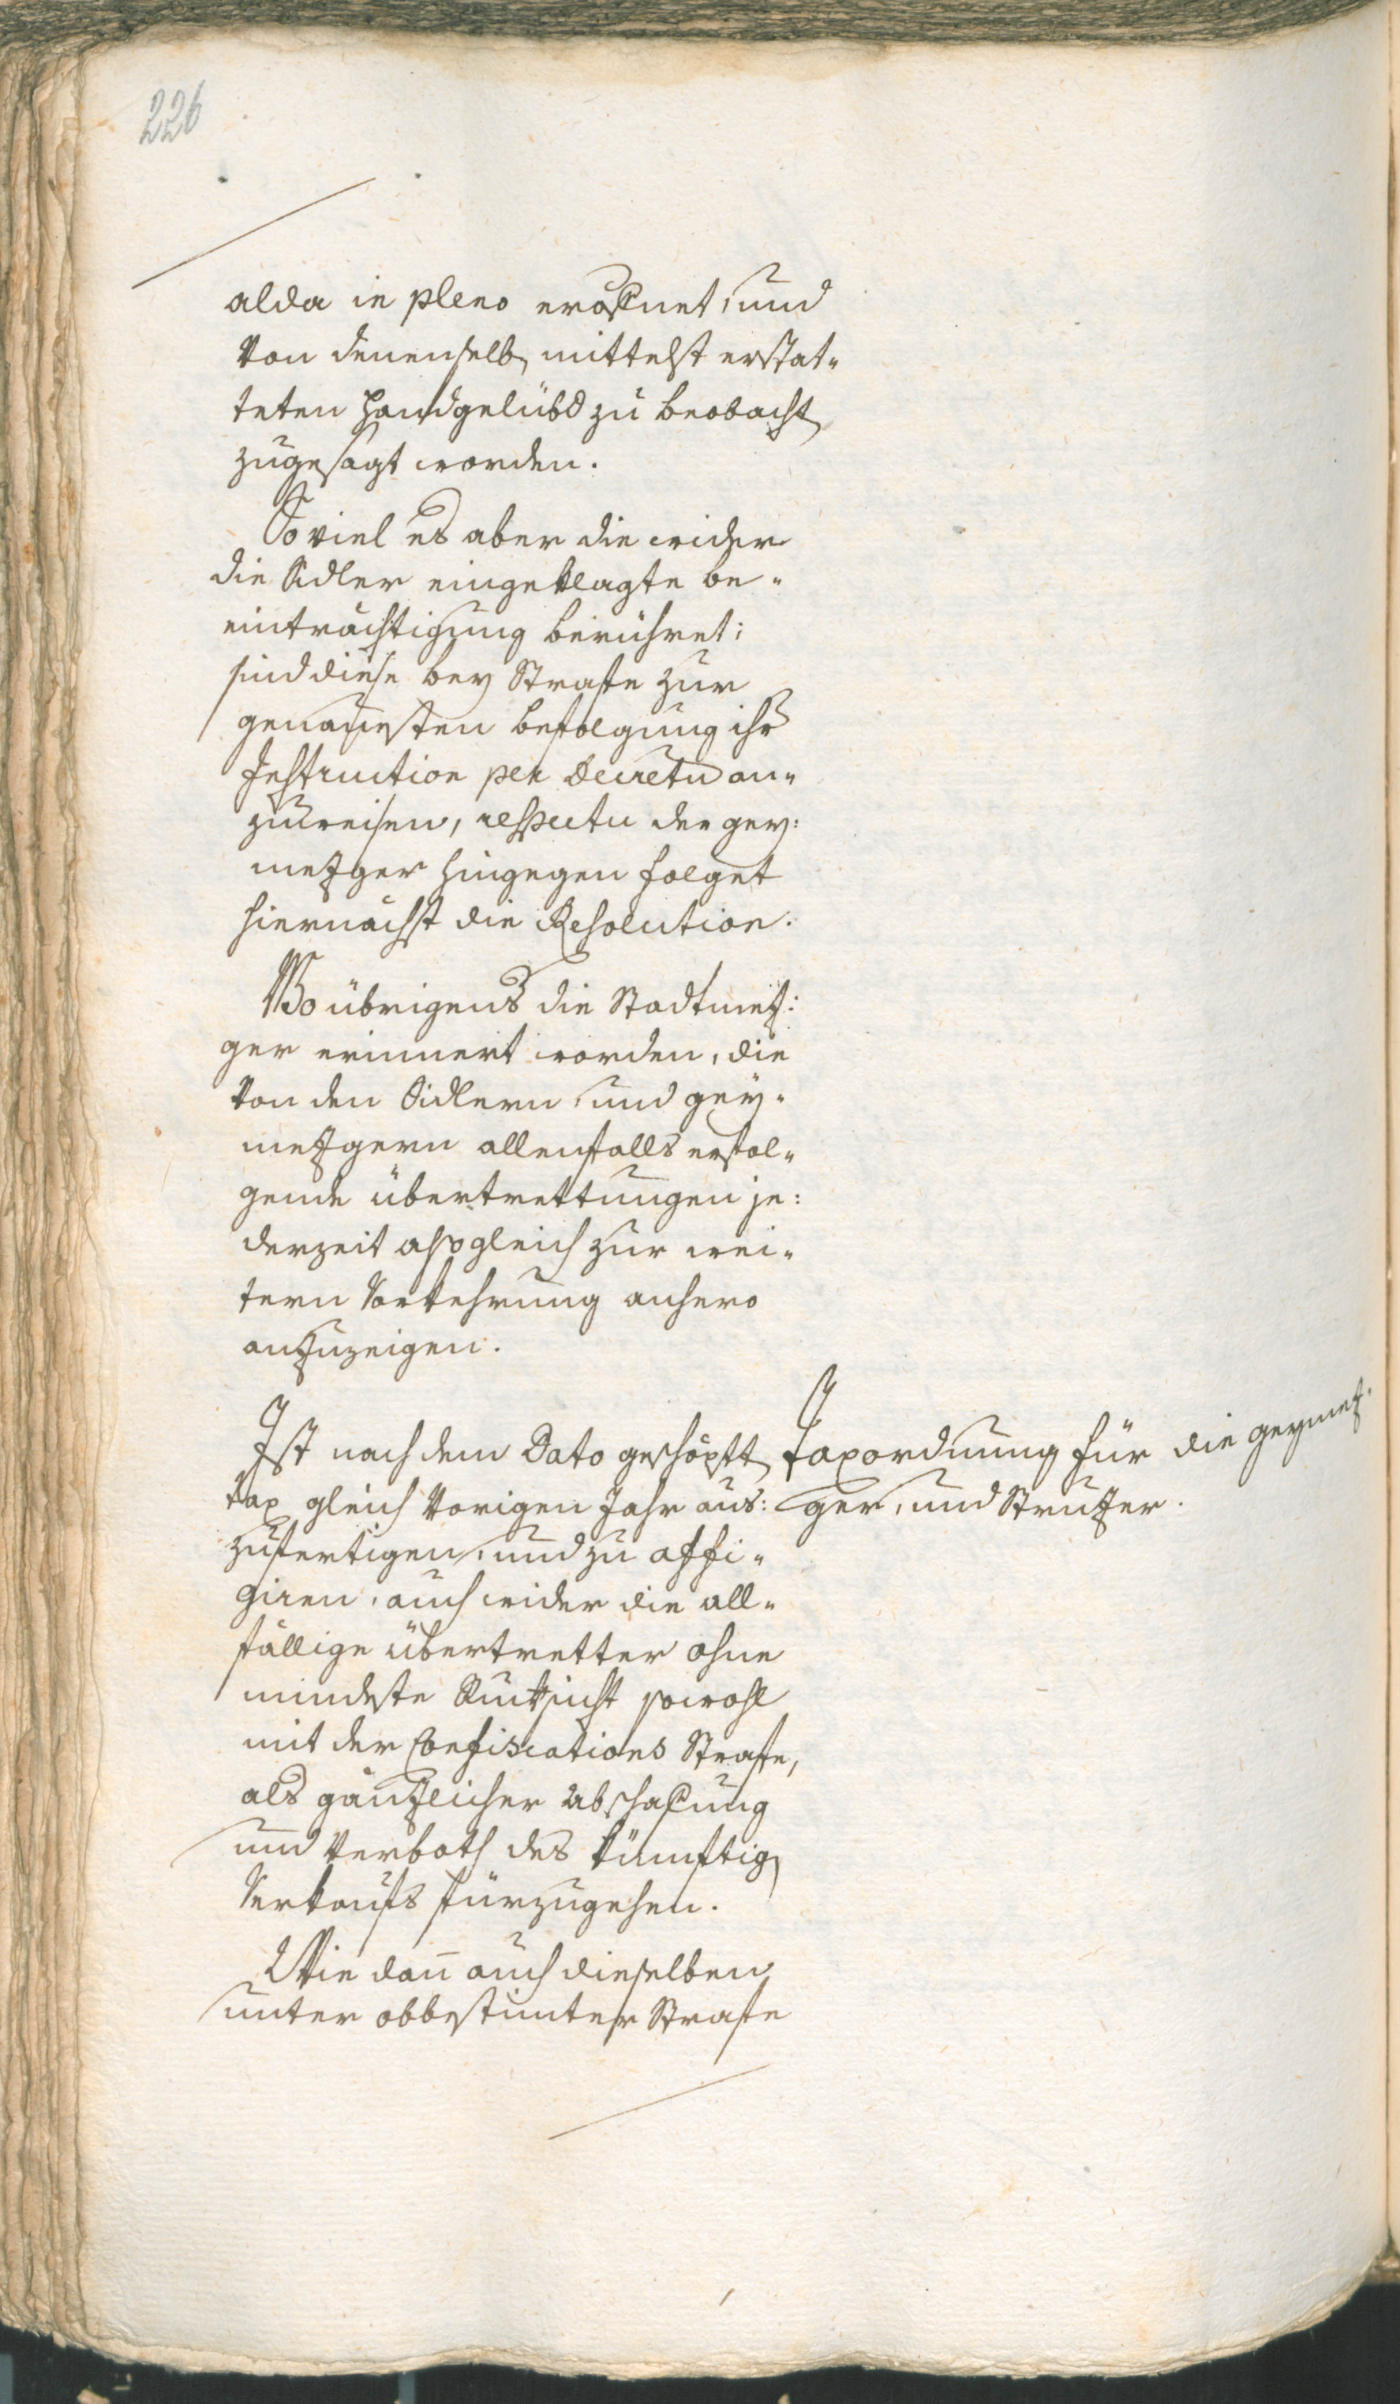 226
alda in pleno eröffnet, und
von denenselb. mittelst erstat-
teten Handgelübd zu beobacht.
zugesagt worden.
So viel es aber die wider
die Sidler eingeklagte be-
einträchtigung berühret;
sind diese bey Strafe zur
genauesten befolgung ihr
Instruction per Decretu an-
zuweisen, respectu der gey:
metzger hingegen folget
hiernächst die Resolution.
Wo übrigens die Stadtmetz:
ger erinnert worden, die
von den Sidlern, und gey-
metzgern allenfalls erfol-
gende übertrettungen je:
derzeit alsogleich zur wei-
tern Vorkehrung anhero
anzuzeigen.
Ist nach dem Dato geschöpft.
tax gleich vorigen Jahr aus:
zufertigen, und zu affi-
giren, auch wider die all-
fällige übertretter ohne
mindeste Rucksicht sowohl
mit der Confiscations Strafe,
als gäntzlicher abschafung
und Verboth des künftig.
Verkaufs fürzugehen.
Wie dan̄ auch dieselben
unter obbestimter Strafe
Taxordnung für die geymetz-
ger, und Strutzer.